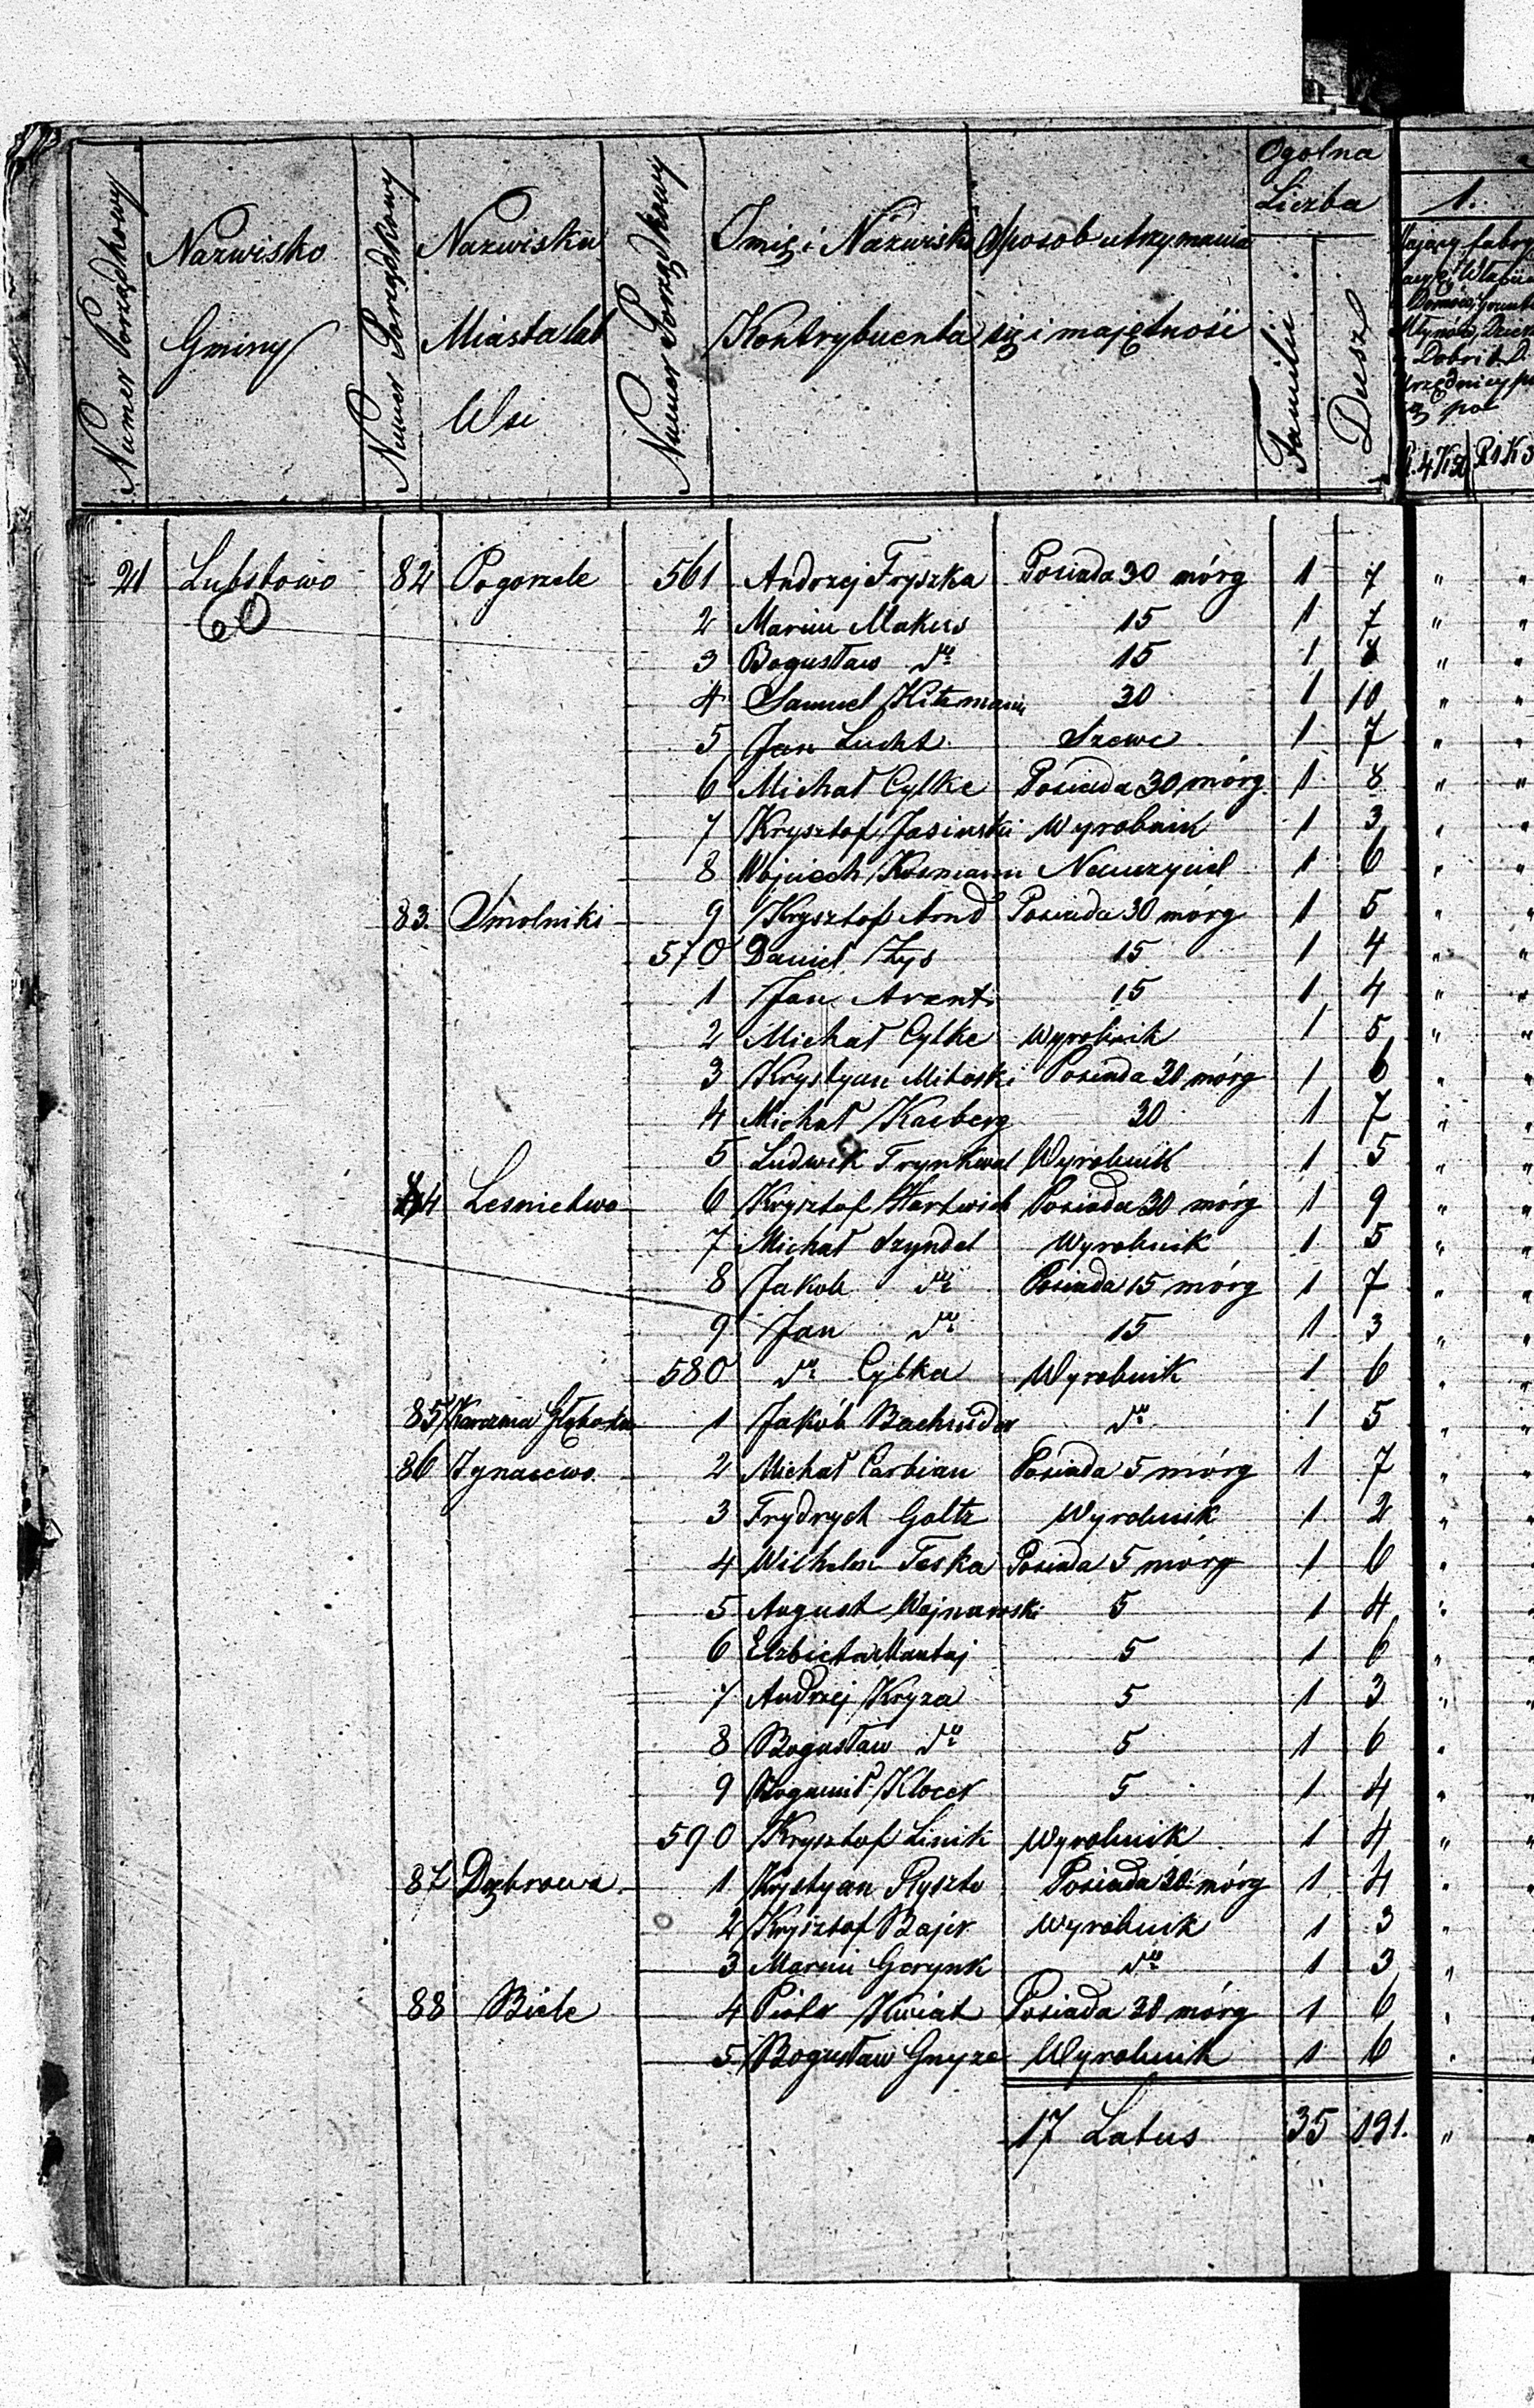 Numer Porządkowy
Nazwisko Gminy
Numer Porządkowy
Nazwisko Miasta lub Wsi
Numer Porządkowy
Imię i Nazwisko Kontrybuenta
Sposob utrzymania się i majętności
Ogolna Liczba
Familii
Dusz
1.
21 Lubstowo 82 Pogorzele 561 Andrzej Fryszka Posiada 30 mórg 1 7 " "
60
2 Marcin Makus 15 1 7 " "
3 Bogusław dto 15 1 8 " "
4 Samuel Kitzmann 30 1 10 " "
5 Jan Lucht Szewc 1 7 " "
6 Michał Cylke Posiada 30 mórg 1 8 " "
7 Krysztof Jasinski Wyrobnik 1 3 " "
8 Wojciech Kosmann Nauczyciel 1 6 " "
83. Smolniki 9 Krysztof Arnd Posiada 30 mórg 1 5 " "
570 Daniel Zys 15 1 4 " "
1 Jan Arent 15 1 4 " "
2 Michał Cylke Wyrobnik 1 5 " "
3 Krystyan Mitoski Posiada 30 mórg 1 6 " "
4 Michał Kasberg 30 1 7 " "
5 Ludwik Trynkwal Wyrobnik 1 5 " "
84 Lesnictwo 6 Krysztof Hartwich Posiada 30 mórg 1 9 " "
7 Michał Szyndel Wyrobnik 1 5 " "
8 Jakob dto Posiada 15 mórg 1 7 " "
9 Jan dto 15 1 3 " "
580 dto Cylka Wyrobnik 1 6 " "
85 Karczma Głęboka 1 Jakób dto 1 5 " "
86 Ignacewo 2 Michał Carbian Posiada 5 mórg 1 7 " "
3 Frydrych Goltz Wyrobnik 1 2 " "
4 Wilhelm Teska Posiada 5 mórg 1 6 " "
5 August Wojnaroski 5 1 4 " "
6 Elzbieta Mantaj 5 1 6 " "
7 Andrzej Kryza 5 1 3 " "
8 Bogusław dto 5 1 6 " "
9 Bogumił Klocek 5 1 4 " "
590 Krysztof Linik Wyrobnik 1 4 " "
87 Dąbrowa 1 Krystyan Ryszto Posiada 30 mórg 1 4 " "
2 Krysztof Bajer Wyrobnik 1 3 " "
3 Marcin Gerynk dto 1 3 " "
88 Biele 4 Piotr Kwiat Posiada 30 mórg 1 6 " "
5 Bogusław Gnyze Wyrobnik 1 6 " "
17 Latus 35 191. " "